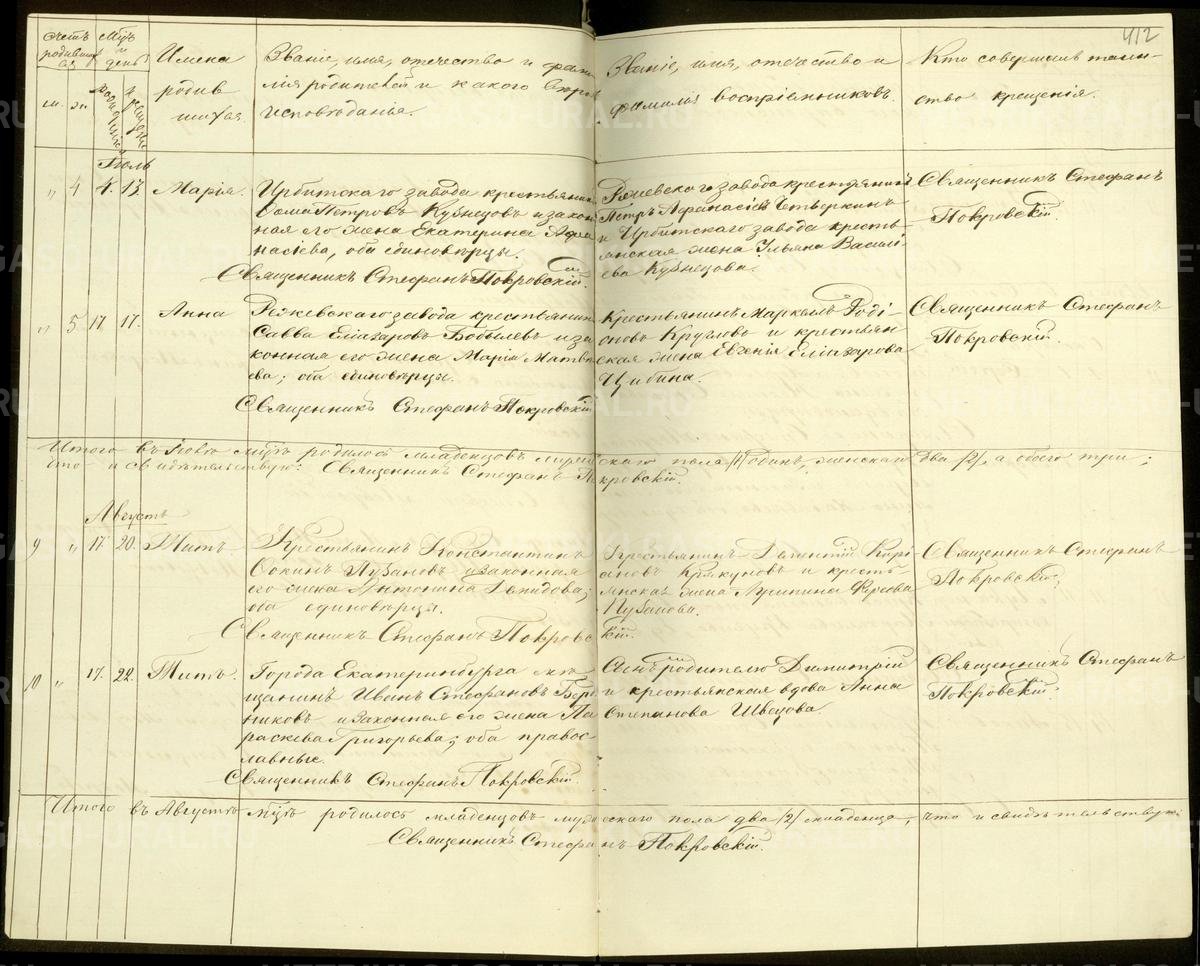 412
Счетъ родившихся
Мѣсяцъ и день
Имена родившихся.
Званіе, имя, отечество и фамилія родителей и какого вѣроисповѣданія.
Званіе, имя, отечество и
фамилія воспріемниковъ.
Кто совершалъ таин-
ство крещенія.
м. ж.
рожденія
крещенія
Іюль
" 4 4. 13. Марія.
Ирбитскаго завода крестьянинъ
Ѳома Петровъ Кузнецовъ и закон-
ная его жена Екатерина Афа-
насіева, оба единовѣрцы.
Священникъ Стефанъ Покровскій.
Режевскаго завода крестьянинъ
Петръ Афанасіевъ Четверкинъ
и Ирбитскаго завода кресть-
янская жена Ульяна Василі-
ева Кузнецова.
Священникъ Стефанъ
Покровскій.
" 5 17 17. Анна
Режевскаго завода крестьянинъ
Савва Еліазаровъ Бобылевъ и за-
конная его жена Марія Матвѣ-
ева; оба единовѣрцы.
Священникъ Стефанъ Покровскій
Крестьянинъ Маркелъ Роді-
оновъ Кругловъ и крестьян-
ская жена Евгенія Еліазарова
Цибина.
Священникъ Стефанъ
Покровскій.
Итого въ Іюлѣ мѣсяцѣ родилось младенцовъ мужескаго пола /1/ одинъ, женскаго два /2/, а обоего три;
что и свидѣтельствую: Священникъ Стефанъ Покровскій.
Августъ
9 " 17 20. Титъ
Крестьянинъ Константинъ
Ѳокинъ Пузановъ и законная
его жена Антонина Давидова;
оба единовѣрцы.
Священникъ Стефанъ Покровскій.
Крестьянинъ
Крякуновъ и кресть-
янская жена
Пузанова.
Священникъ Стефанъ
Покровскій;
10 " 17. 22. Титъ.
Города Екатеринбурга мѣ-
щанинъ Иванъ Стефановъ Берд-
никовъ и законная его жена Па-
раскева Григорьева; оба правос-
лавные.
Священникъ Стефанъ Покровскій.
Сынъ родителю Димитрій
и крестьянская вдова Анна
Степанова Швецова.
Священникъ Стефанъ
Покровскій.
Итого въ Августѣ мѣсяцѣ родилось младенцовъ мужескаго пола два /2/ младенца, что и свидѣтельствую:
Священникъ Стефанъ Покровскій.